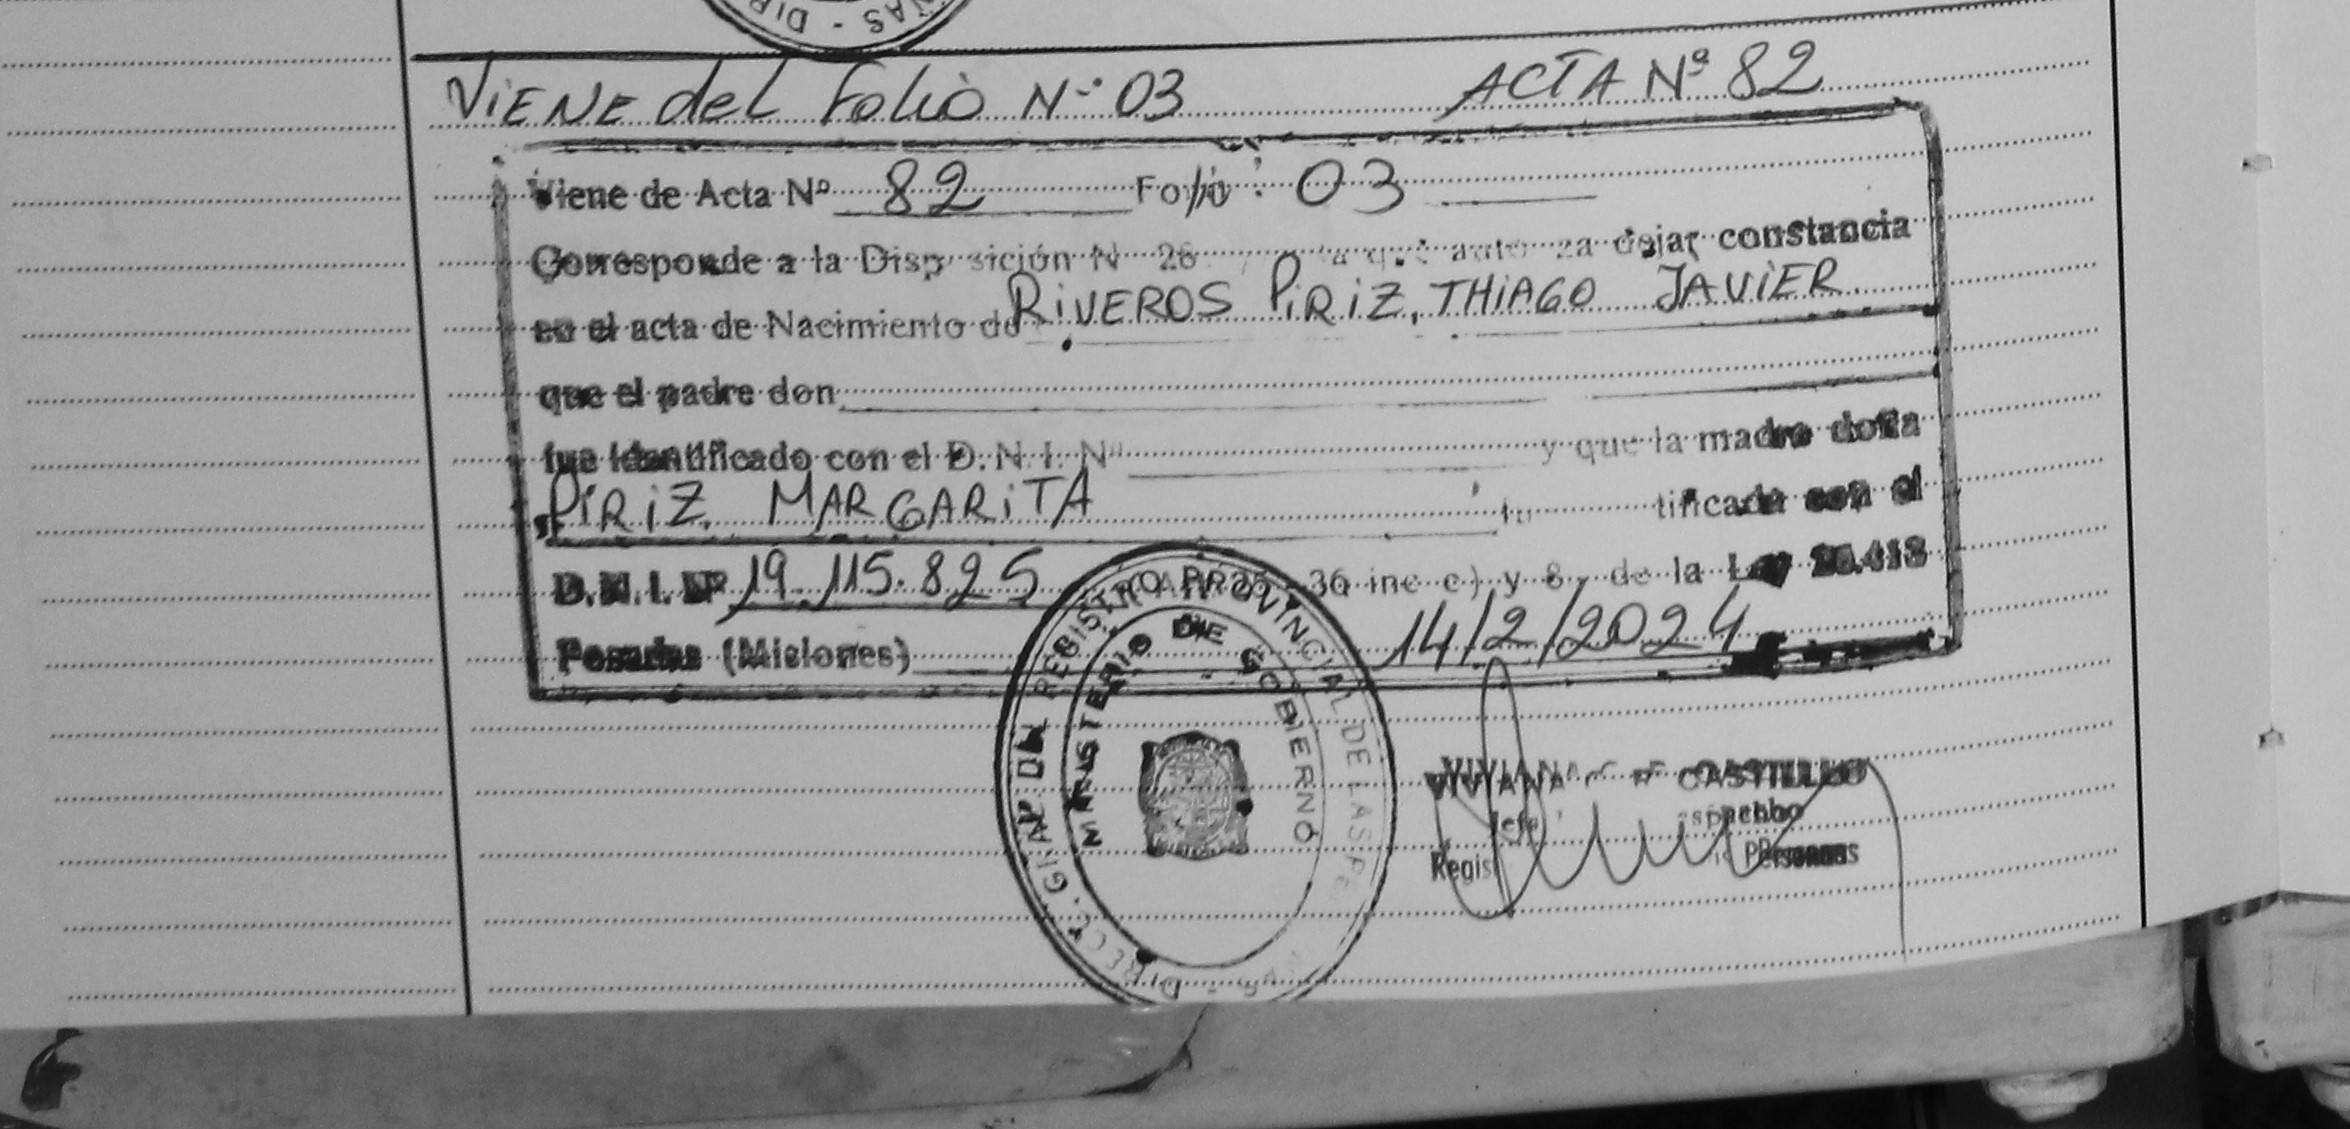 VIENE del Folio Nº 03 ACTA Nº 82
Viene de Acta Nº 82 Folio: 03
Corresponde a la Disposición N 26 que autoriza dejar constancia
en el acta de Nacimiento de RIVEROS PIRIZ, THIAGO JAVIER
que el padre don
fue identificado con el D.N.I. Nº y que la madre doña
PIRIZ, MARGARITA tificada con el
D.N.I. Nº 19.115.825 36 inc c) y 8, de la Ley 26.413
Posadas (Misiones) 14/2/2024
DIRECC. GRAL DEL REGISTRO PROVINCIAL DE LAS PE
MINISTERIO DE GOBIERNO
VIVIANA CASTILLO
Jefe Despacho
Personas